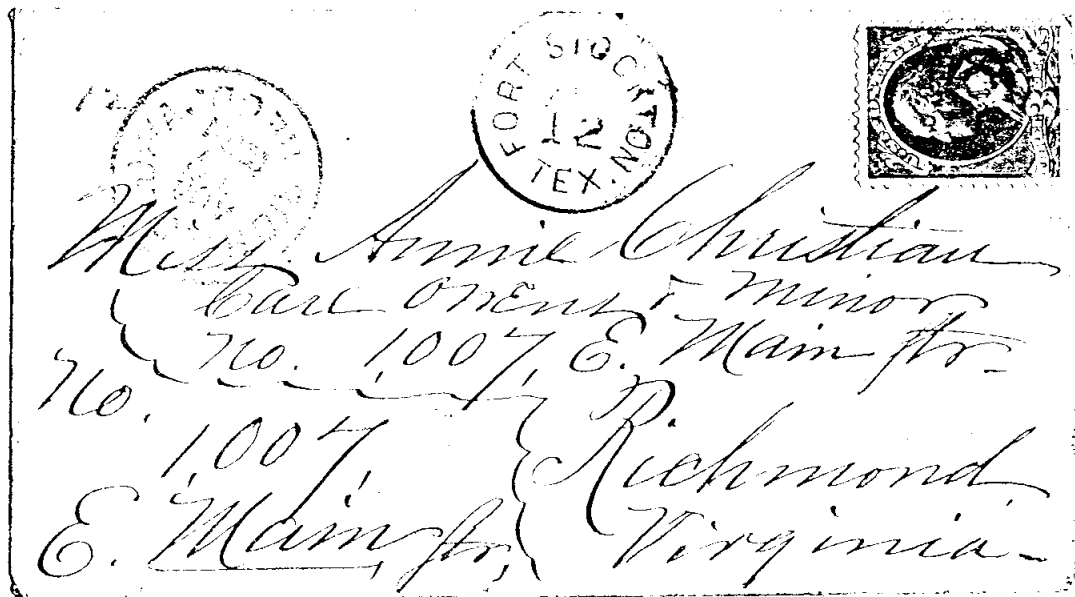 FORT STOCKTON
12
TEX.
Miss. Annie Christian
Care Owens & Minor
No. 1,007, E. Main Str.
No.
1,007,
E. Main, Str,
Richmond,
Virginia.